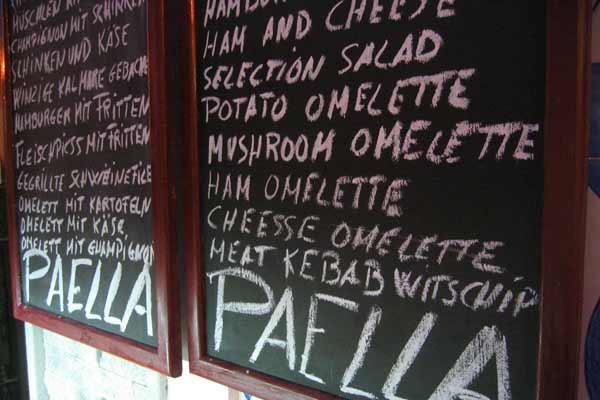 MIT SCHINKEN
CHAMPIGNON MIT SCHINKEN
SCHINKEN UND KÄSE
WINZIGE KALMARE GEBACKE
HAMBURGER MIT FRITTEN
FLEISCHPICSS MIT FRITTEN
GEGRILLTE SCHWEINEFILE
OMELETT MIT KARTOFELN
OMELETT MIT KÄSE
OMELETT MIT CHAMPIGNON
PAELLA
HAM AND CHEESE
SELECTION SALAD
POTATO OMELETTE
MUSHROOM OMELETTE
HAM OMELETTE
CHEESSE OMELETTE
MEAT KEBAB WITSCHIP
PAELLA